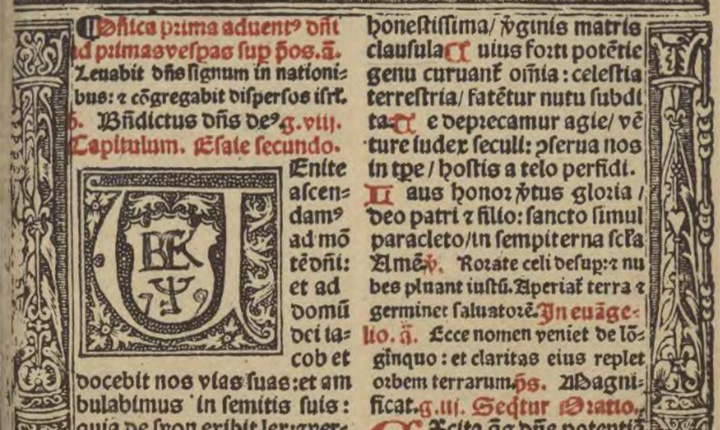 ¶Dñica prima aduentꝰ dñi
ad primas vesꝑas sup p̄os. ā.
Leuabit dñs signum in nationi⸗
bus: ⁊ cōgregabit dispersos isrł.
p̄. Bñdictus dñs deꝰ g. viij.
Capitulum. Esaie secundo.
Enite
ascen⸗
damꝰ
ad mō
tē dñi:
et ad
domū
dei ia⸗
cob et
BEK
docebit nos vias suas: et am
bulabimus in semitis suis:
quia de syon exibit lex: ⁊ ver⸗
honestissima/ v̄ginis matris
clausula ¶ uius forti potētie
genu curuant̄ oīnia: celestia
terrestria/ fatētur nutu subdi
ta ¶ e deprecamur agie/ vē
ture iudex seculi: ꝯserua nos
in tp̄e/ hostis a telo perfidi.
L aus honor v̄tus gloria/
deo patri ⁊ filio: sancto simul
paracleto/in sempiterna scła
Amē ℣. Rorate celi desup: ⁊ nu
bes pluant iustū. Aperiat̄ terra ⁊
germinet saluatorē. In euāge⸗
lio. ā. Ecce nomen veniet de lō⸗
gīnquo: et claritas eius replet
orbem terrarum. p̄s. Magni⸗
ficat. g. iij. Seq̄tur Oratio.
Excita q̄s dñe potentiā